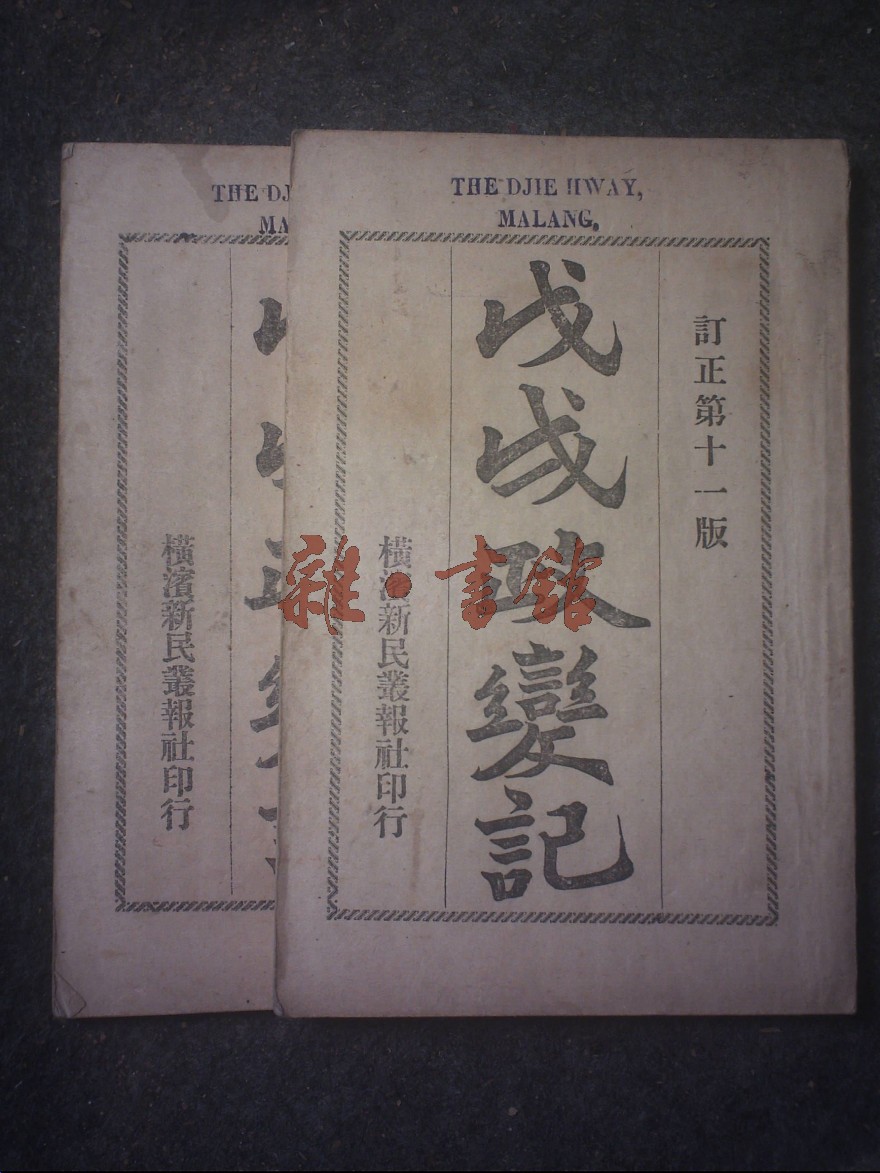 THE DJIE HWAY,
MALANG.
訂正第十一版
戊戌政變記
橫濱新民叢報社印行
THE DJ
MA
橫濱新民叢報社印行
雜·書館